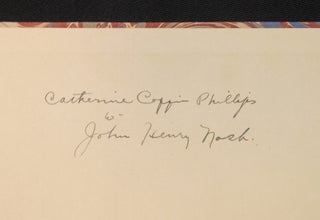 Catherine Coffin Phillips
to
John Henry Nash.